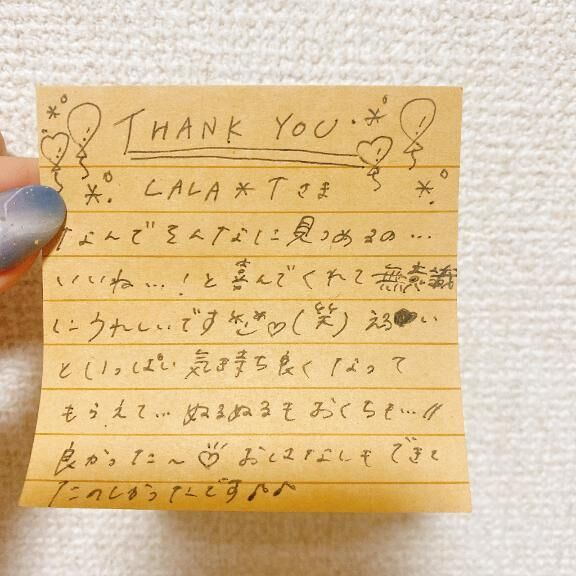 THANK YOU.
LALA*Tさま
なんでそんなに見つめるの…
いいね…!と喜んでくれて無意識
にうれしいです♡(笑)
といっぱい気持ち良くなって
もらえて…ぬるぬるもおくちも…//
良かった〜♡おはなしもできて
たのしかったです♪♪